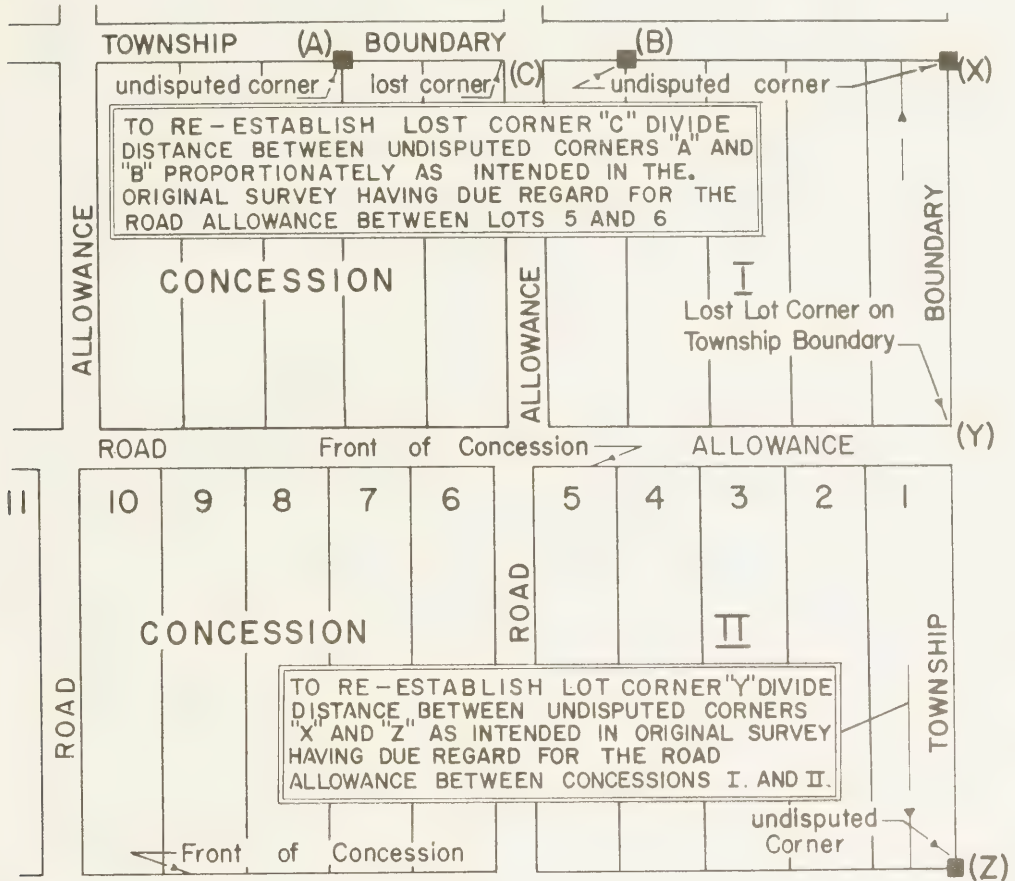 TOWNSHIP (A) BOUNDARY (B)
undisputed corner lost corner (C) undisputed corner (X)
TO RE-ESTABLISH LOST CORNER "C" DIVIDE
DISTANCE BETWEEN UNDISPUTED CORNERS "A" AND
"B" PROPORTIONATELY AS INTENDED IN THE.
ORIGINAL SURVEY HAVING DUE REGARD FOR THE
ROAD ALLOWANCE BETWEEN LOTS 5 AND 6
ALLOWANCE
CONCESSION
ALLOWANCE
I
BOUNDARY
Lost Lot Corner on
Township Boundary
(Y)
ROAD Front of Concession ALLOWANCE
11 10 9 8 7 6 5 4 3 2 1
ROAD
CONCESSION
ROAD
II
TOWNSHIP
TO RE-ESTABLISH LOT CORNER "Y" DIVIDE
DISTANCE BETWEEN UNDISPUTED CORNERS
"X" AND "Z" AS INTENDED IN ORIGINAL SURVEY
HAVING DUE REGARD FOR THE ROAD
ALLOWANCE BETWEEN CONCESSIONS I. AND II.
undisputed
Corner
Front of Concession
(Z)